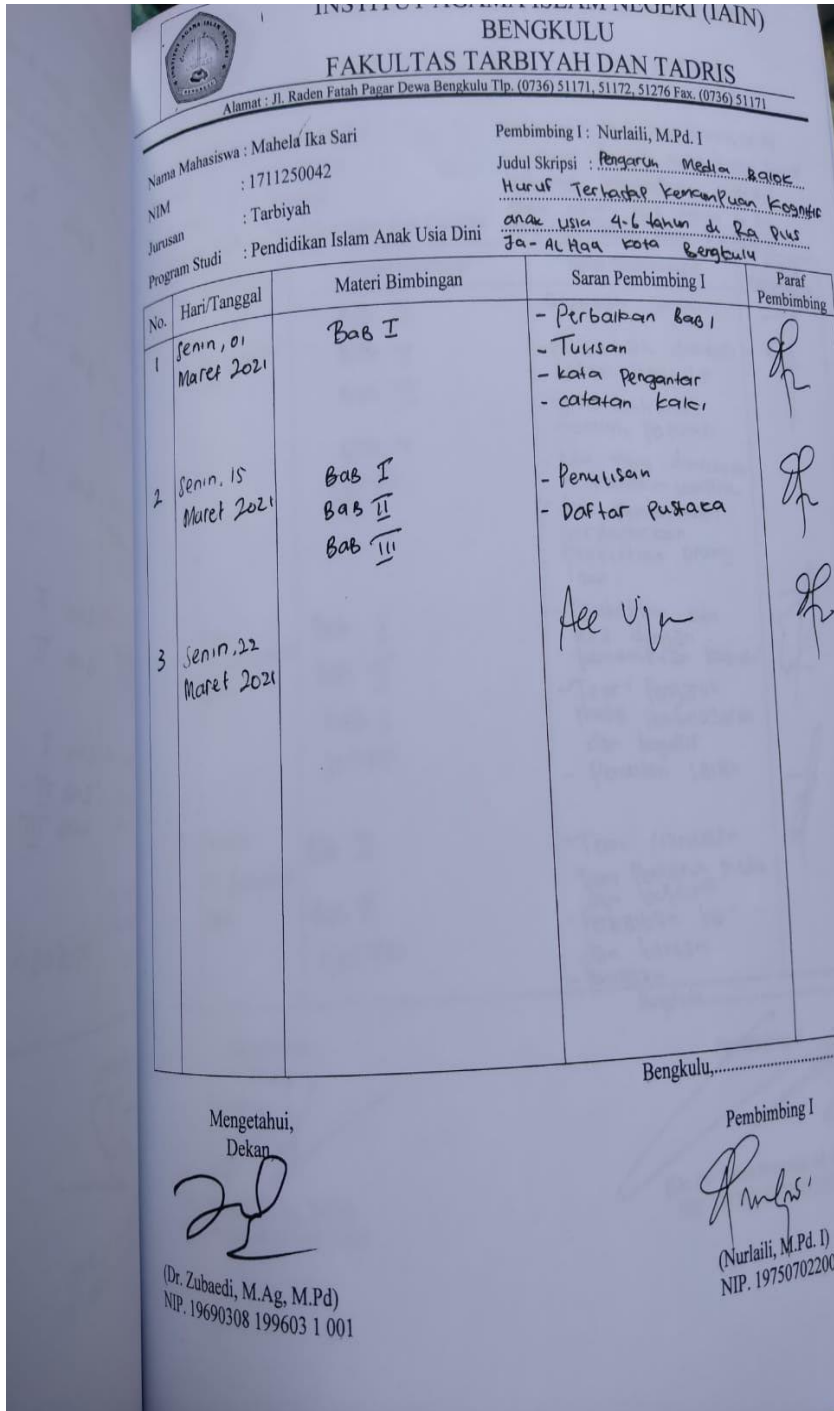 INSTITUT AGAMA ISLAM NEGERI (IAIN)
BENGKULU
FAKULTAS TARBIYAH DAN TADRIS
Alamat : Jl. Raden Fatah Pagar Dewa Bengkulu Tlp. (0736) 51171, 51172, 51276 Fax. (0736) 51171
Nama Mahasiswa : Mahela Ika Sari
NIM : 1711250042
Jurusan : Tarbiyah
Program Studi : Pendidikan Islam Anak Usia Dini
Pembimbing I : Nurlaili, M.Pd. I
Judul Skripsi : Pengaruh Media Balok
Huruf Terhadap Kemampuan Kognitif
anak usia 4-6 tahun di Ra Plus
Ja-ALHaq Kota Bengkulu
No. Hari/Tanggal Materi Bimbingan Saran Pembimbing I Paraf Pembimbing
1 Senin, 01 Maret 2021
Bab I
- Perbaikan Bab 1
- Tulisan
- kata Pengantar
- catatan kaki
2 Senin, 15 Maret 2021
Bab I
Bab II
Bab III
- Penulisan
- Daftar Pustaka
3 Senin, 22 Maret 2021
Acc Ujian
Bengkulu,..............
Mengetahui,
Dekan
(Dr. Zubaedi, M.Ag, M.Pd)
NIP. 19690308 199603 1 001
Pembimbing I
(Nurlaili, M.Pd. I)
NIP. 1975070220